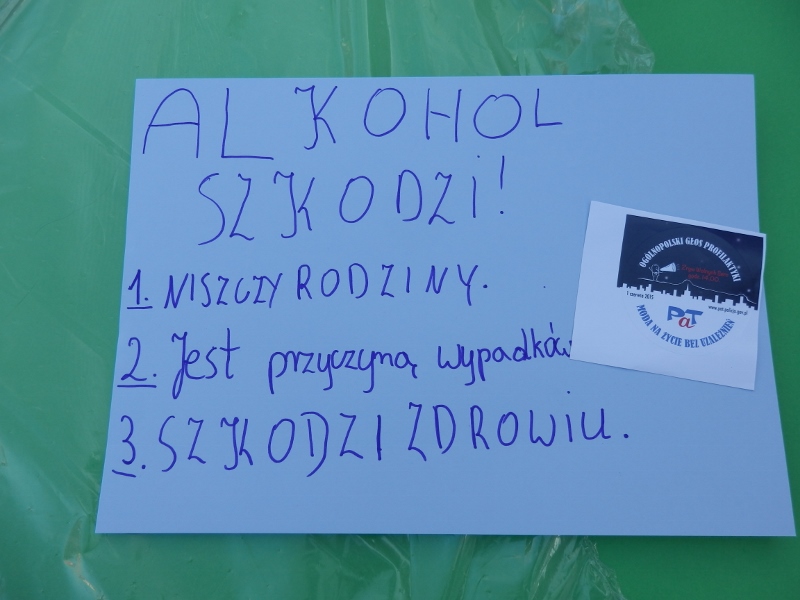 ALKOHOL
SZKODZI!
1. NISZCZY RODZINY.
2. Jest przyczyną wypadków
3. SZKODZI ZDROWIU.
OGÓLNOPOLSKI GŁOS PROFILAKTYKI
1 czerwca 2015
www.pat.policja.gov.pl
PaT
MODA NA ŻYCIE BEZ UZALEŻNIEŃ